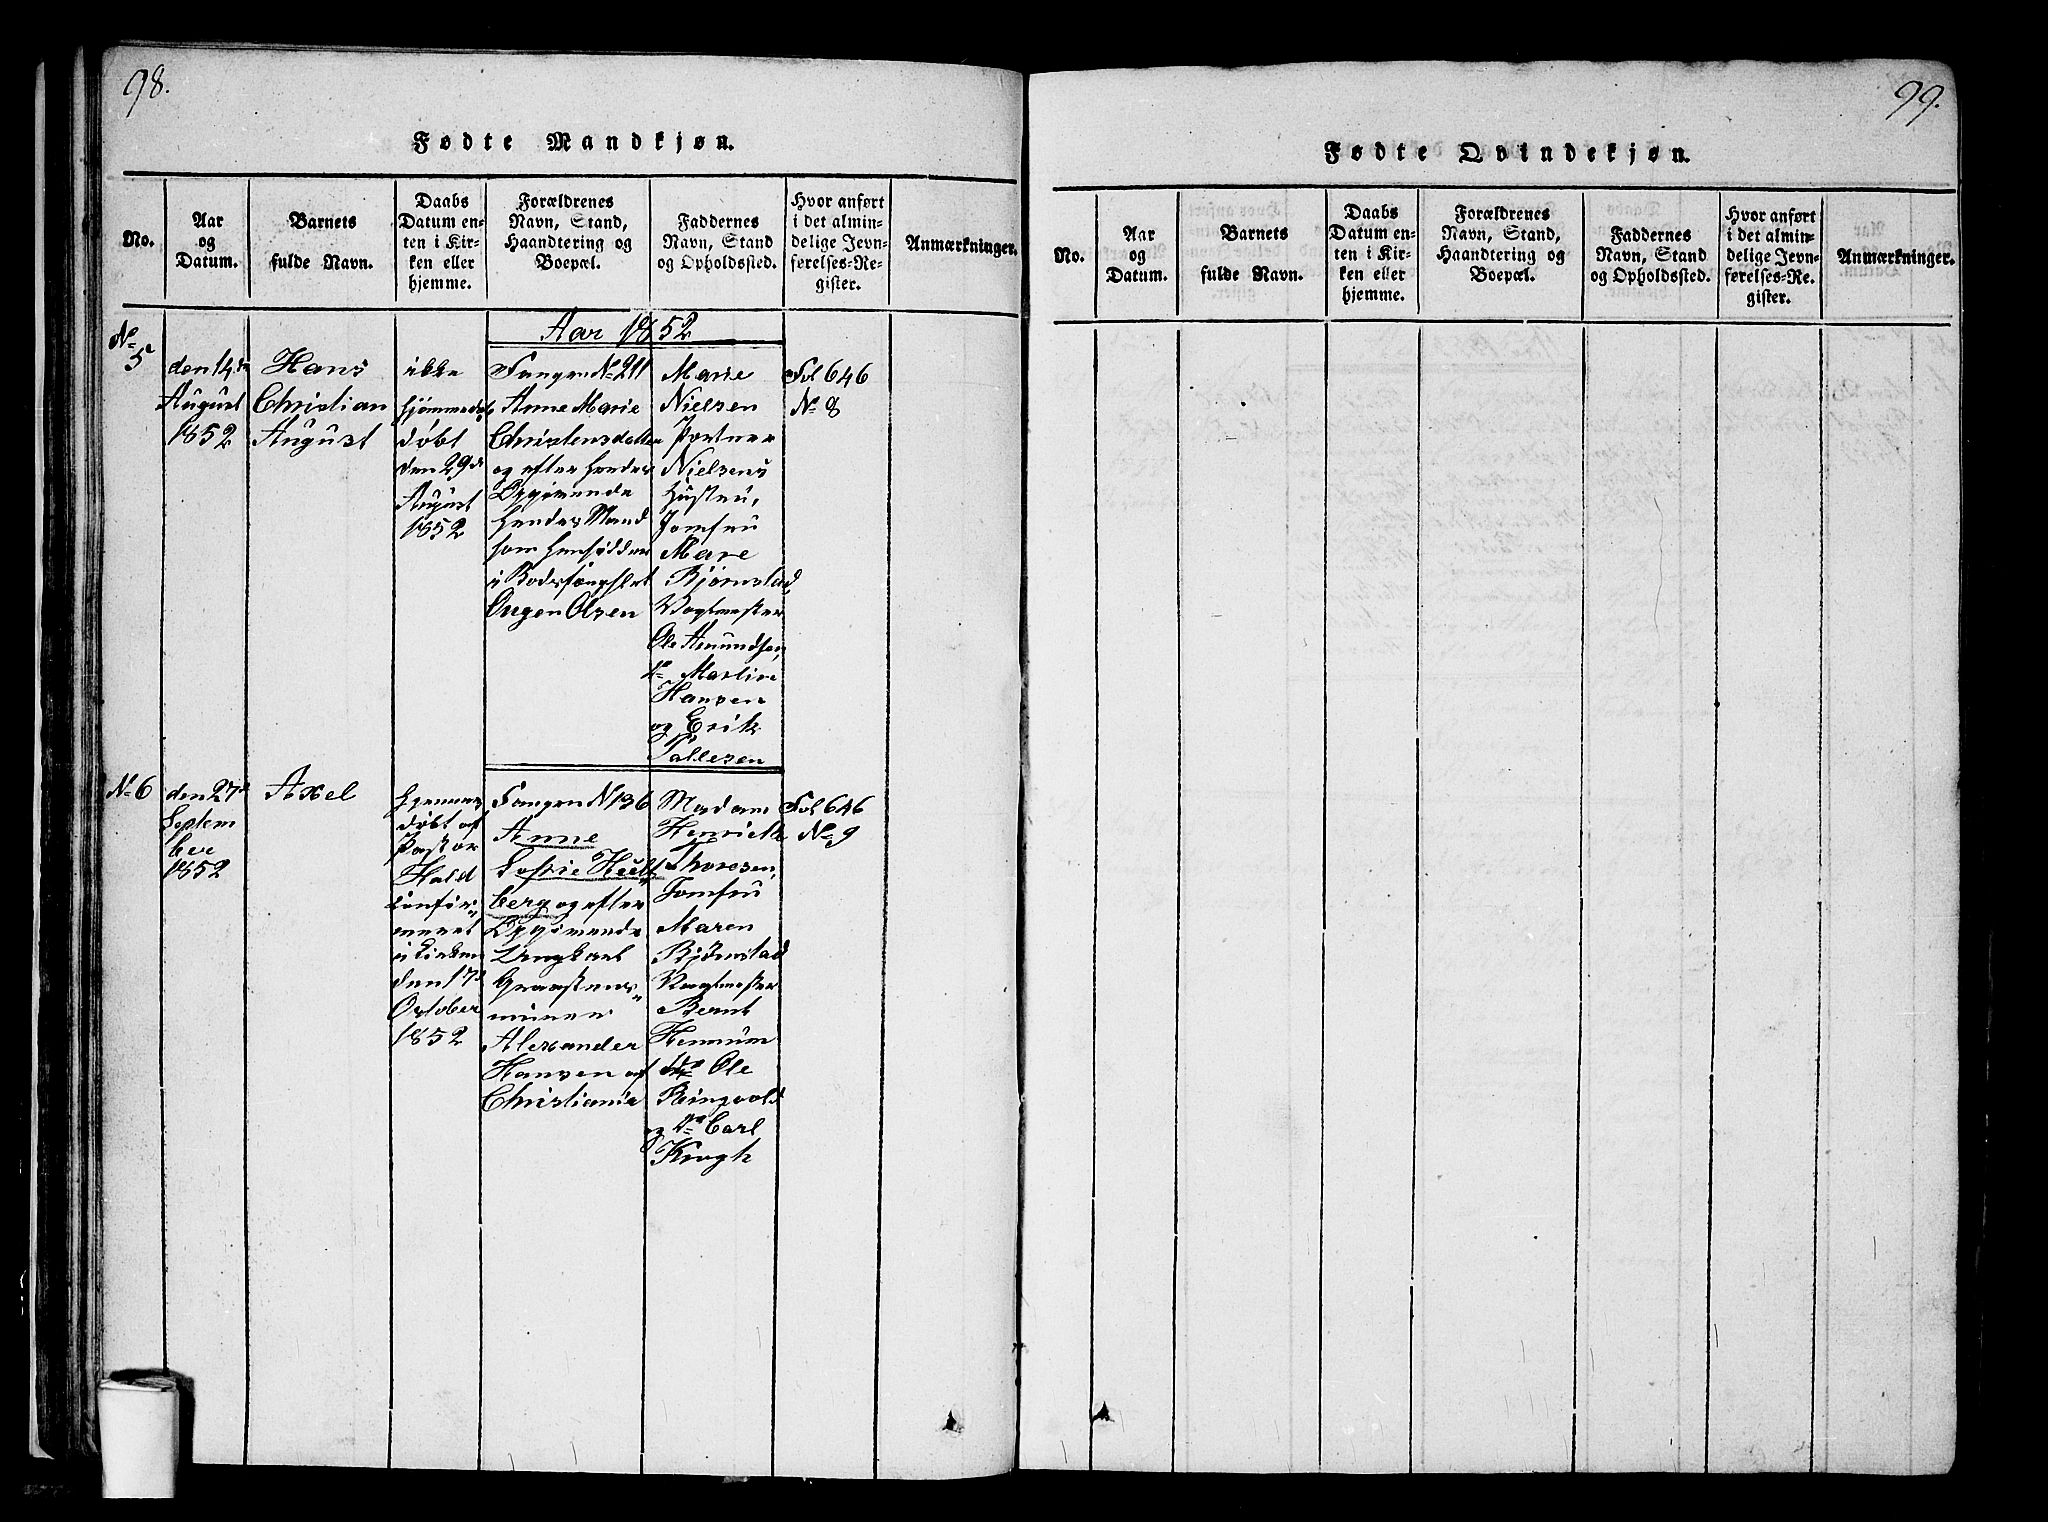 98.
Fødte Mandkjøn.
No.
Aar
og
Datum.
Barnets
fulde Navn.
Daabs
Datum en-
ten i Kir-
ken eller
hjemme.
Forældrenes
Navn, Stand,
Haandtering og
Boepæl.
Faddernes
Navn, Stand
og Opholdssted.
Hvor anført
i det almin-
delige Jevn-
førelses-Re-
gister.
Anmærkninger.
Aar 1852
No
5
den 14de
August
1852
Hans
Christian
August
ikke
hjemmedøbt
døbt
den 29de
August
1852
Fangen No 211
Anne Marie
Christensdatter
og efter hendes
Opgivende
hendes Mand
som hensidder
i Bodsfængslet
Eugen Olsen
Marie
Nielsen
Portner
Nielsens
Hustru,
Jomfru
Mare
Bjørnstad,
Vagtmester
Ole Amundsen,
do Martin
Hansen
og Erik
Pallesen
Fol 646
No 8
No 6
den 27de
Septem
ber
1852
Axel
hjemme
døbt af
Pastor
Hald
Confir-
meret
i Kirken
den 17de
October
1852
Fangen N 136
Anne
Sofie
berg og efter
Opgivende
Ungkarl
Graasteens
murer
Alexander
Hansen af
Christiania
Madam
Henriette
Thoresen,
Jomfru
Maren
Bjørnstad
Vagtmester
Bernt
Hennum
do Ole
Ringvold
og do Carl
Krogh
Fol 646
No 9
99.
Fødte Qvindekjøn.
No.
Aar
og
Datum.
Barnets
fulde Navn.
Daabs
Datum en-
ten i Kir-
ken eller
hjemme.
Forældrenes
Navn, Stand,
Haandtering og
Boepæl.
Faddernes
Navn, Stand
og Opholdssted.
Hvor anført
i det almin-
delige Jevn-
førelses-Re-
gister.
Anmærkninger.